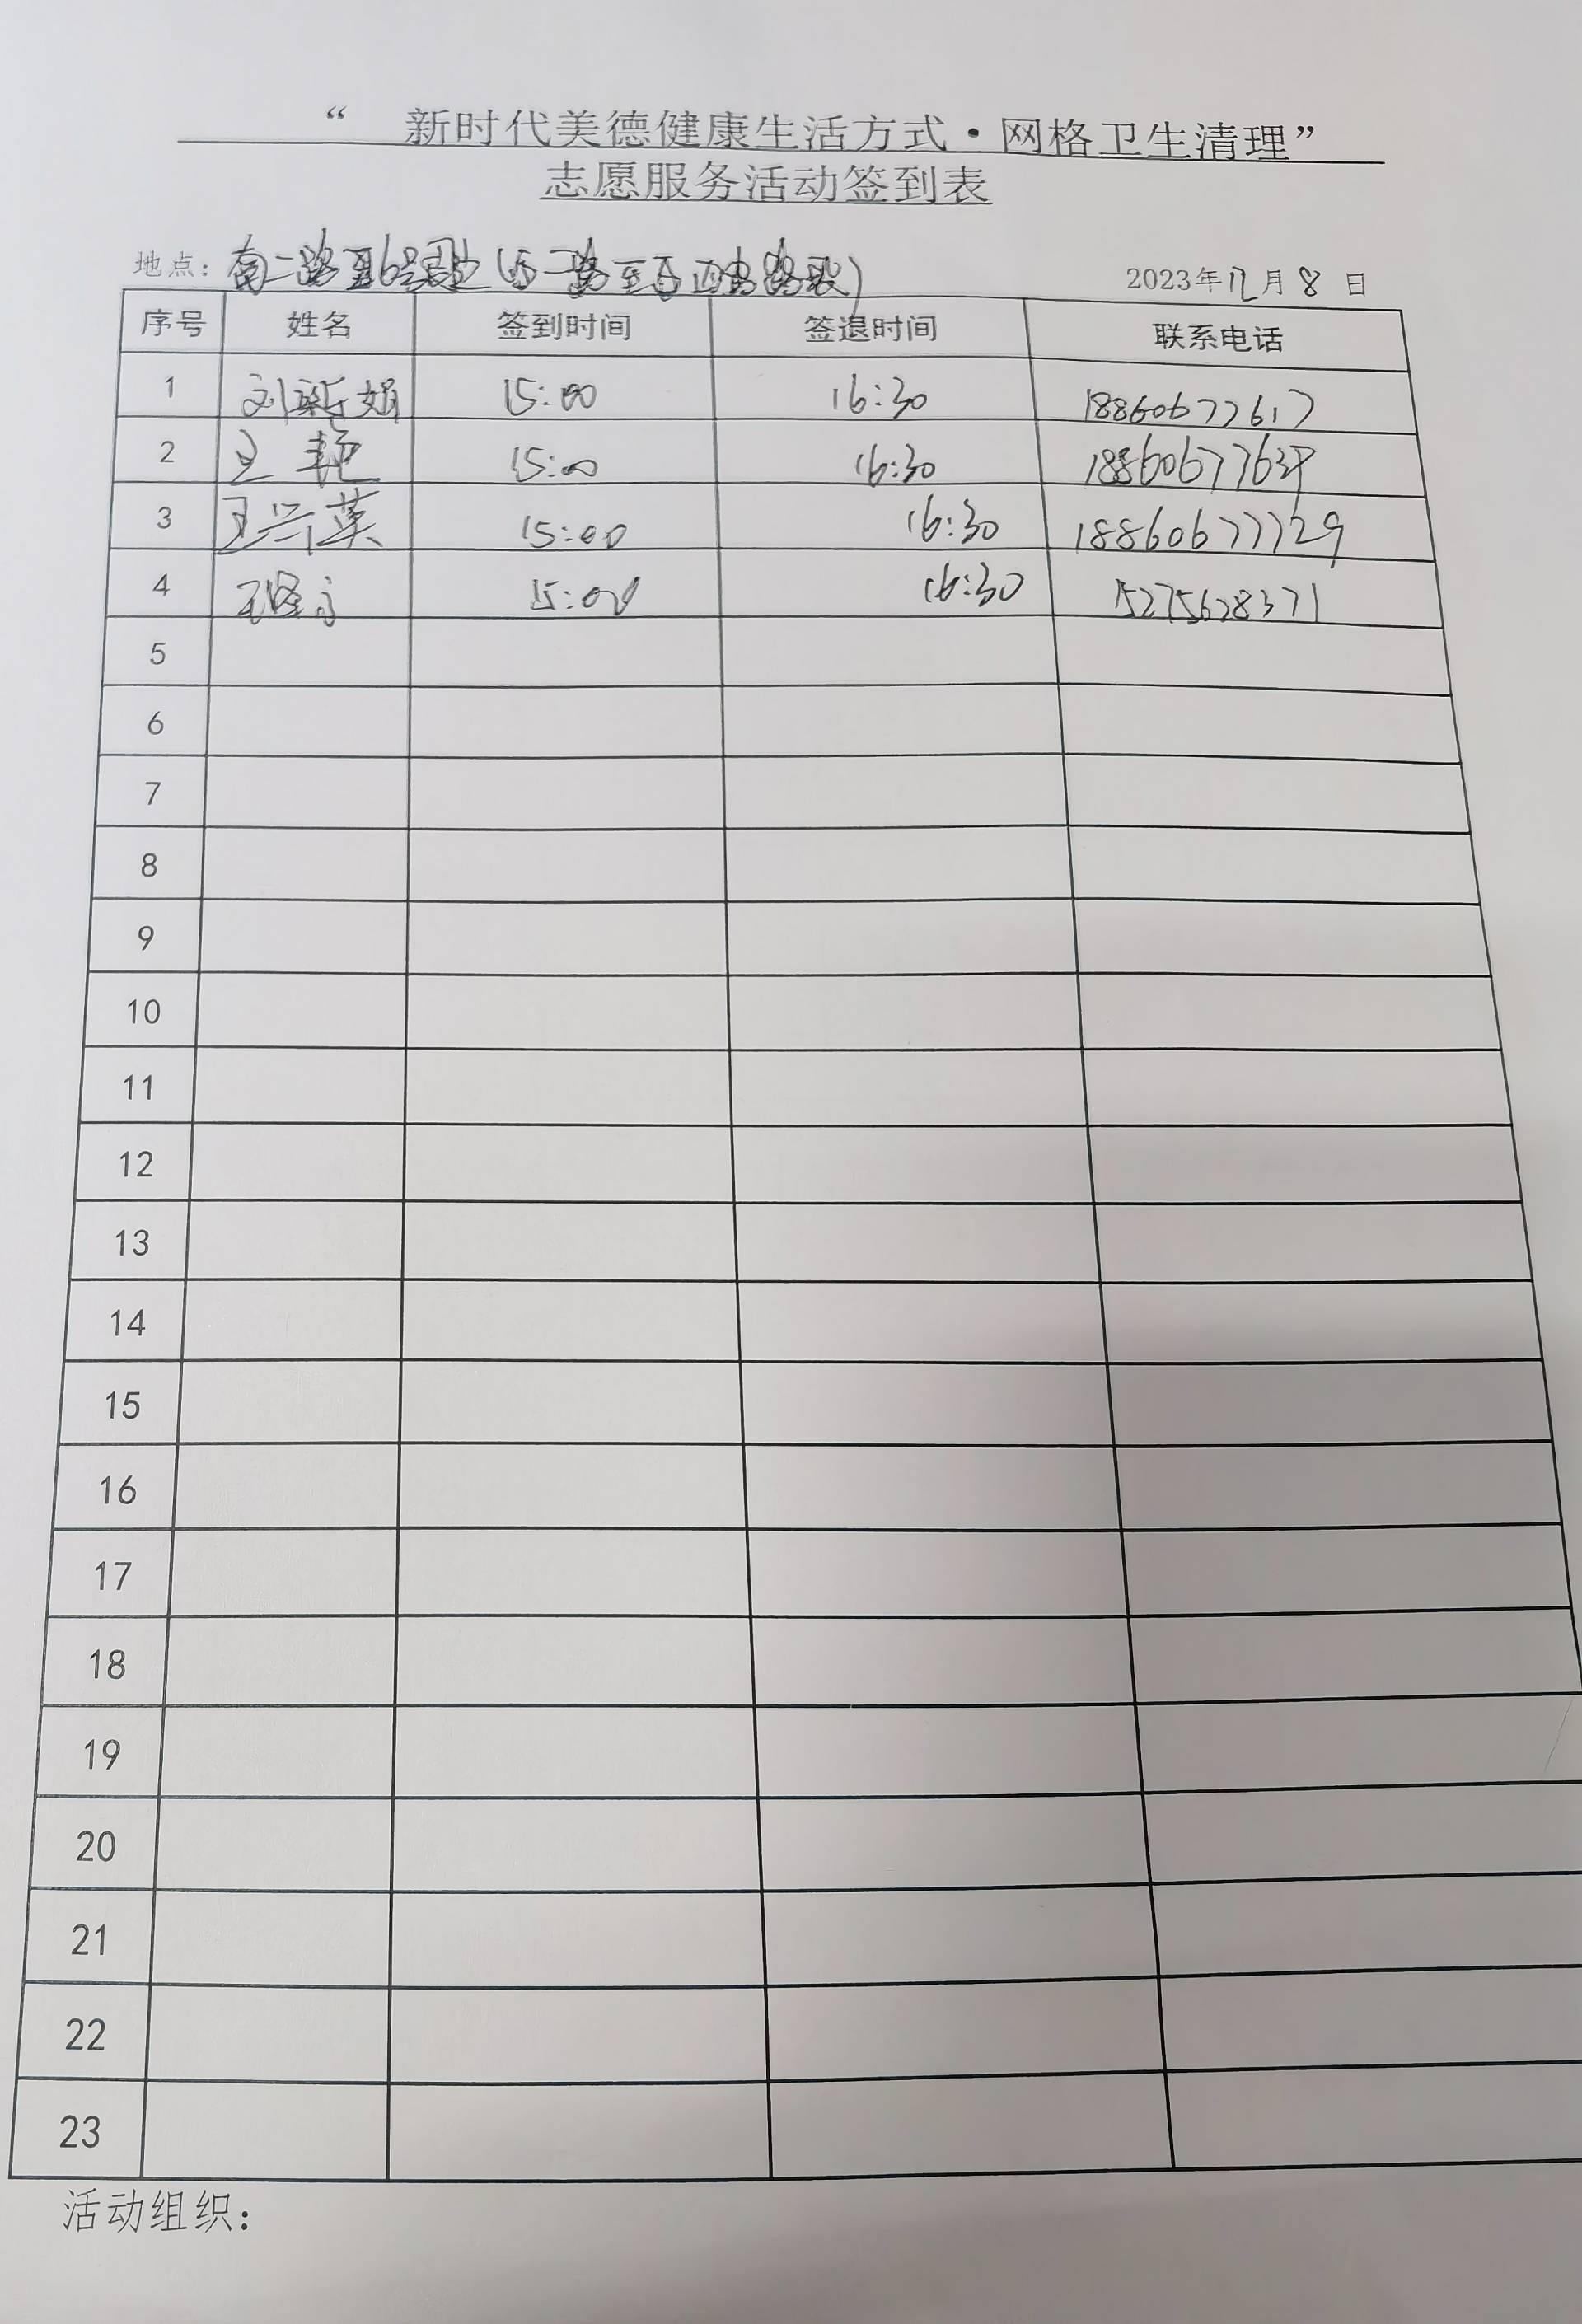 “ 新时代美德健康生活方式·网格卫生清理”
志愿服务活动签到表
地点：南二路 2023年12月8日
序号 姓名 签到时间 签退时间 联系电话
1 刘新娟 15:00 16:30 18860677617
2 王艳 15:00 16:30 18860677637
3 王兴英 15:00 16:30 18860677729
4 15:00 16:30 15275628371
5
6
7
8
9
10
11
12
13
14
15
16
17
18
19
20
21
22
23
活动组织：